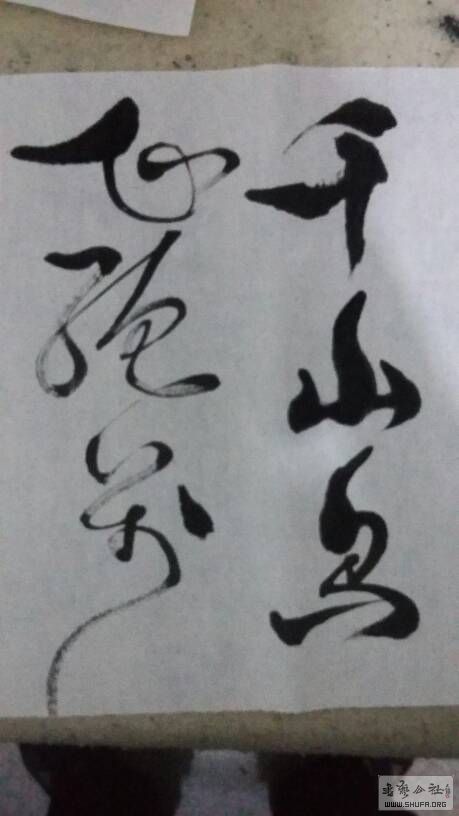 千山鸟
飞绝万
书法公社
WWW.SHUFA.ORG